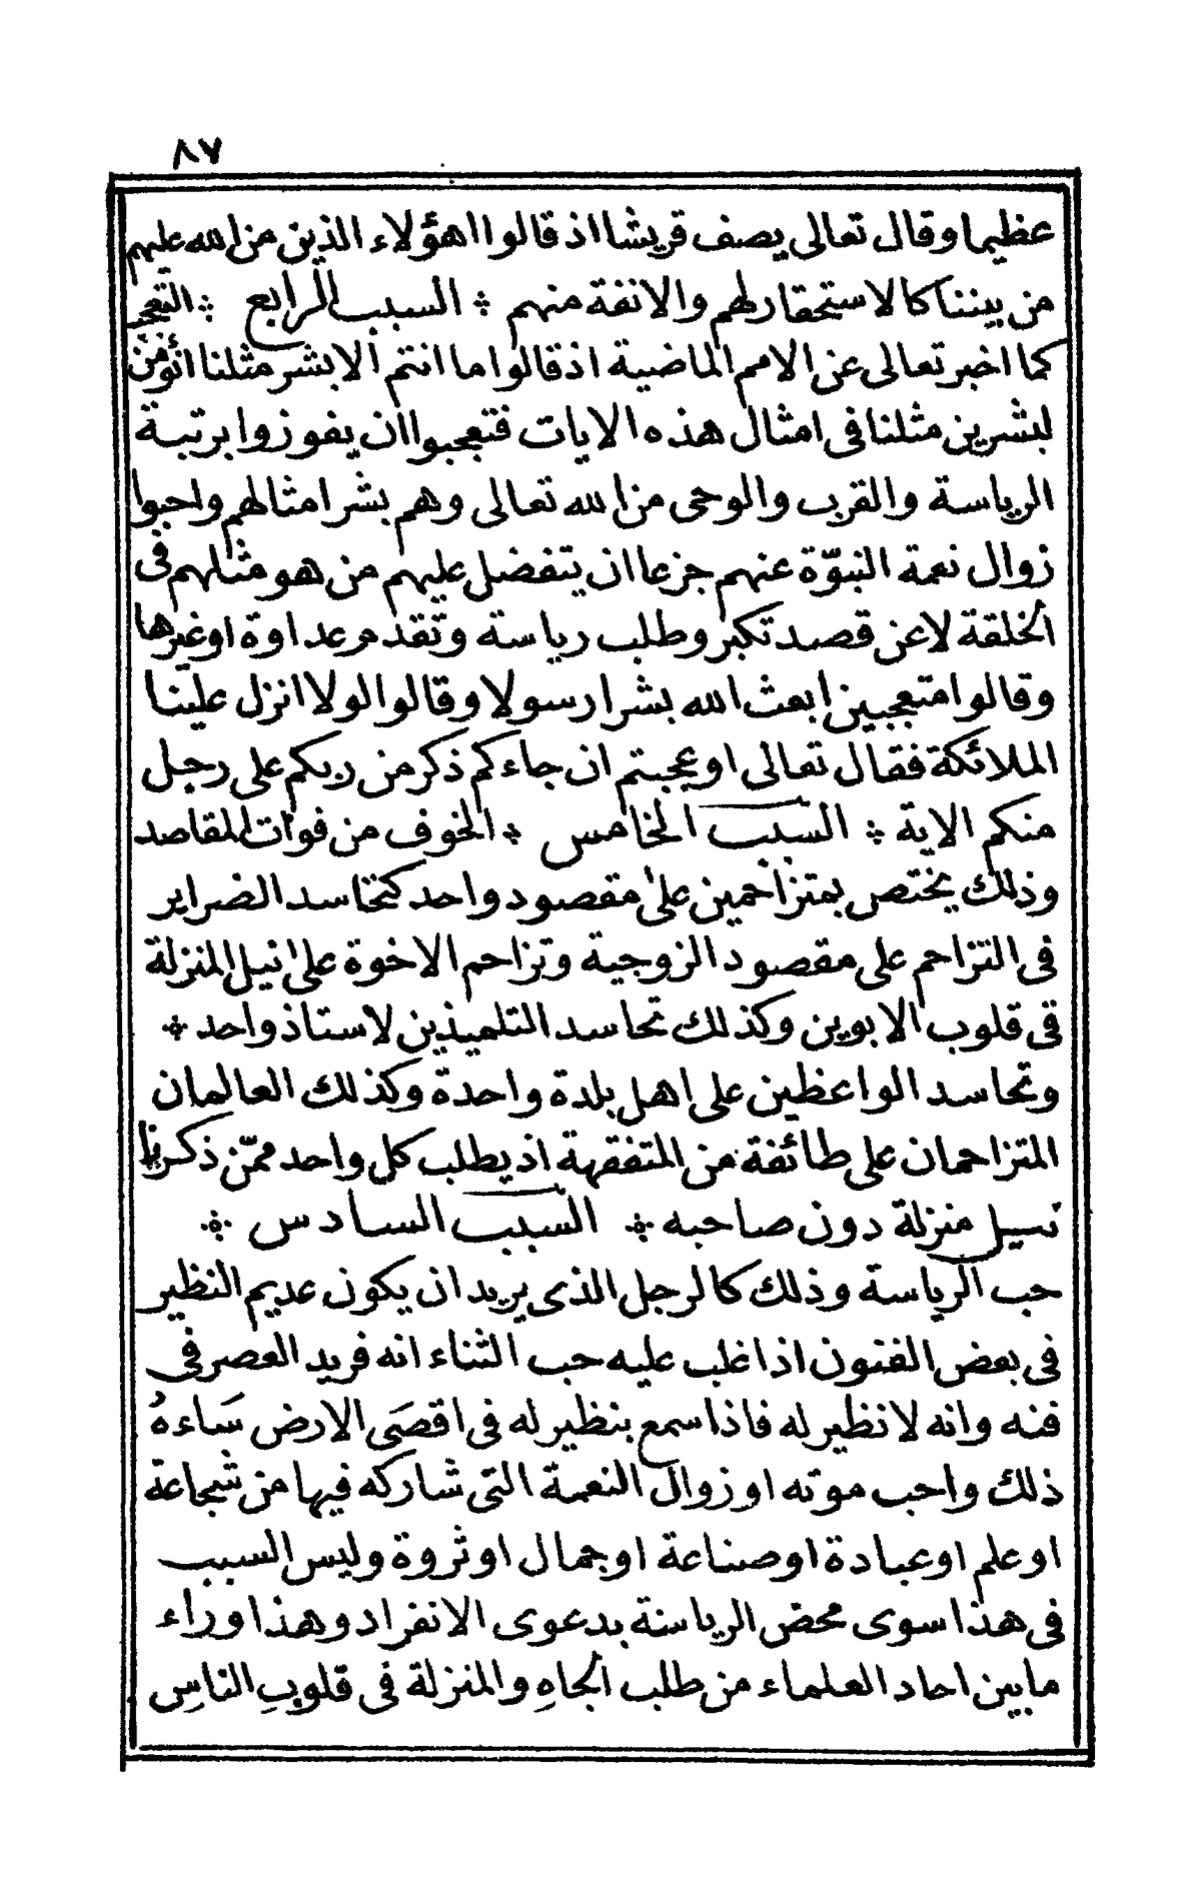 ٨٧
عظيما وقال تعالى يصف قريشا اذ قالوا اهؤلاء الذين من الله عليهم
من بيننا كالاستحقار لهم والانفة منهم ؞ السبب الرابع ؞ التعجب
كما اخبر تعالى عن الامم الماضية اذ قالوا ما انتم الا بشر مثلنا انؤمن
لبشرين مثلنا فى امثال هذه الايات فتعجبوا ان يفوزوا برتبة
الرياسة والقرب والوحى من الله تعالى وهم بشر امثالهم واحبوا
زوال نعمة النبوّة عنهم جزعا ان يتفضل عليهم من هو مثلهم فى
الخلقة لا عن قصد تكبر وطلب رياسة وتقدم عداوة او غيرها
وقالوا متعجبين ابعث الله بشرا رسولا وقالوا لولا انزل علينا
الملائكة فقال تعالى اوعجبتم ان جاءكم ذكر من ربكم على رجل
منكم الاية ؞ السبب الخامس ؞ الخوف من فوات المقاصد
وذلك يختص بمتزاحمين على مقصود واحد كتحاسد الضراير
فى التزاحم على مقصود الزوجية وتزاحم الاخوة على نيل المنزلة
فى قلوب الابوين وكذلك تحاسد التلميذين لاستاذ واحد ؞
وتحاسد الواعظين على اهل بلدة واحدة وكذلك العالمان
المتزاحمان على طائفة من المتفقهة اذ يطلب كل واحد ممّن ذكرنا
نسيل منزلة دون صاحبه ؞ السبب السادس ؞
حب الرياسة وذلك كالرجل الذى يريد ان يكون عديم النظير
فى بعض الفنون اذا غلب عليه حب الثناء انه فريد العصر فى
فنه وانه لا نظير له فاذا سمع بنظير له فى اقصَى الارض سَاءهُ
ذلك واحب موته او زوال النعمة التى شاركه فيها من شجاعة
او علم او عبادة او صناعة او جمال او ثروة وليس السبب
فى هذا سوى محض الرياسة بدعوى الانفراد وهذا وراء
ما بين احاد العلماء من طلب الجاهِ والمنزلة فى قلوبِ الناسِ